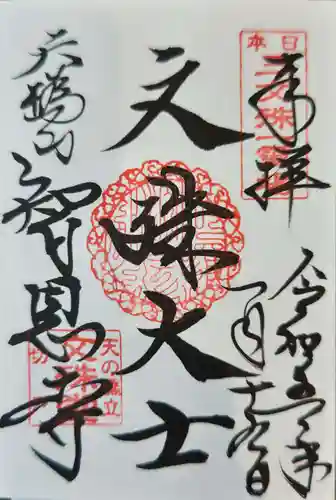 奉拝
日本三文殊
令和五年
一月十九日
文殊大士
天橋山
智恩寺
天の橋立
切
文殊堂